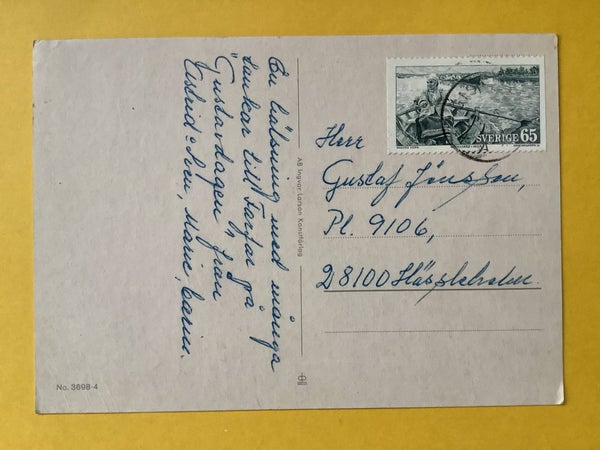 En hälsning med många
tankar till "Farfar" på
Gustavdagen från
Astrid o Sven, Marie, Carin.
AB Ingvar Larson Konstförlag
No. 3698-4
SVERIGE 65
Herr
Gustaf Jönsson,
Pl. 9106,
28100 Hässleholm.